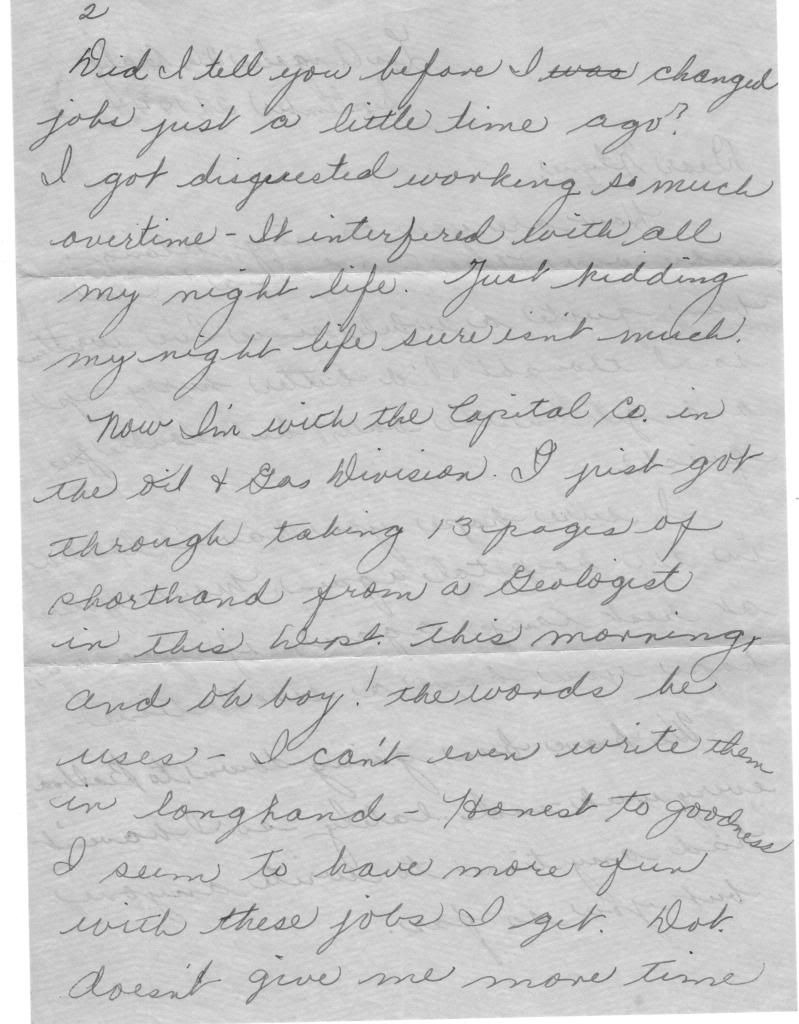 2
Did I tell you before I was changed
jobs just a little time ago?
I got disquested working so much
overtime - It interfered with all
my night life. Just kidding
my night life sure isn't much.
Now I'm with the Capital Co. in
the Oil & Gas Division. I just got
through taking 13 pages of
shorthand from a Geologist
in this Dept. this morning,
and oh boy! the words he
uses - I can't even write them
in longhand - Honest to goodness
I seem to have more fun
with these jobs I get. Dot.
doesn't give me more time